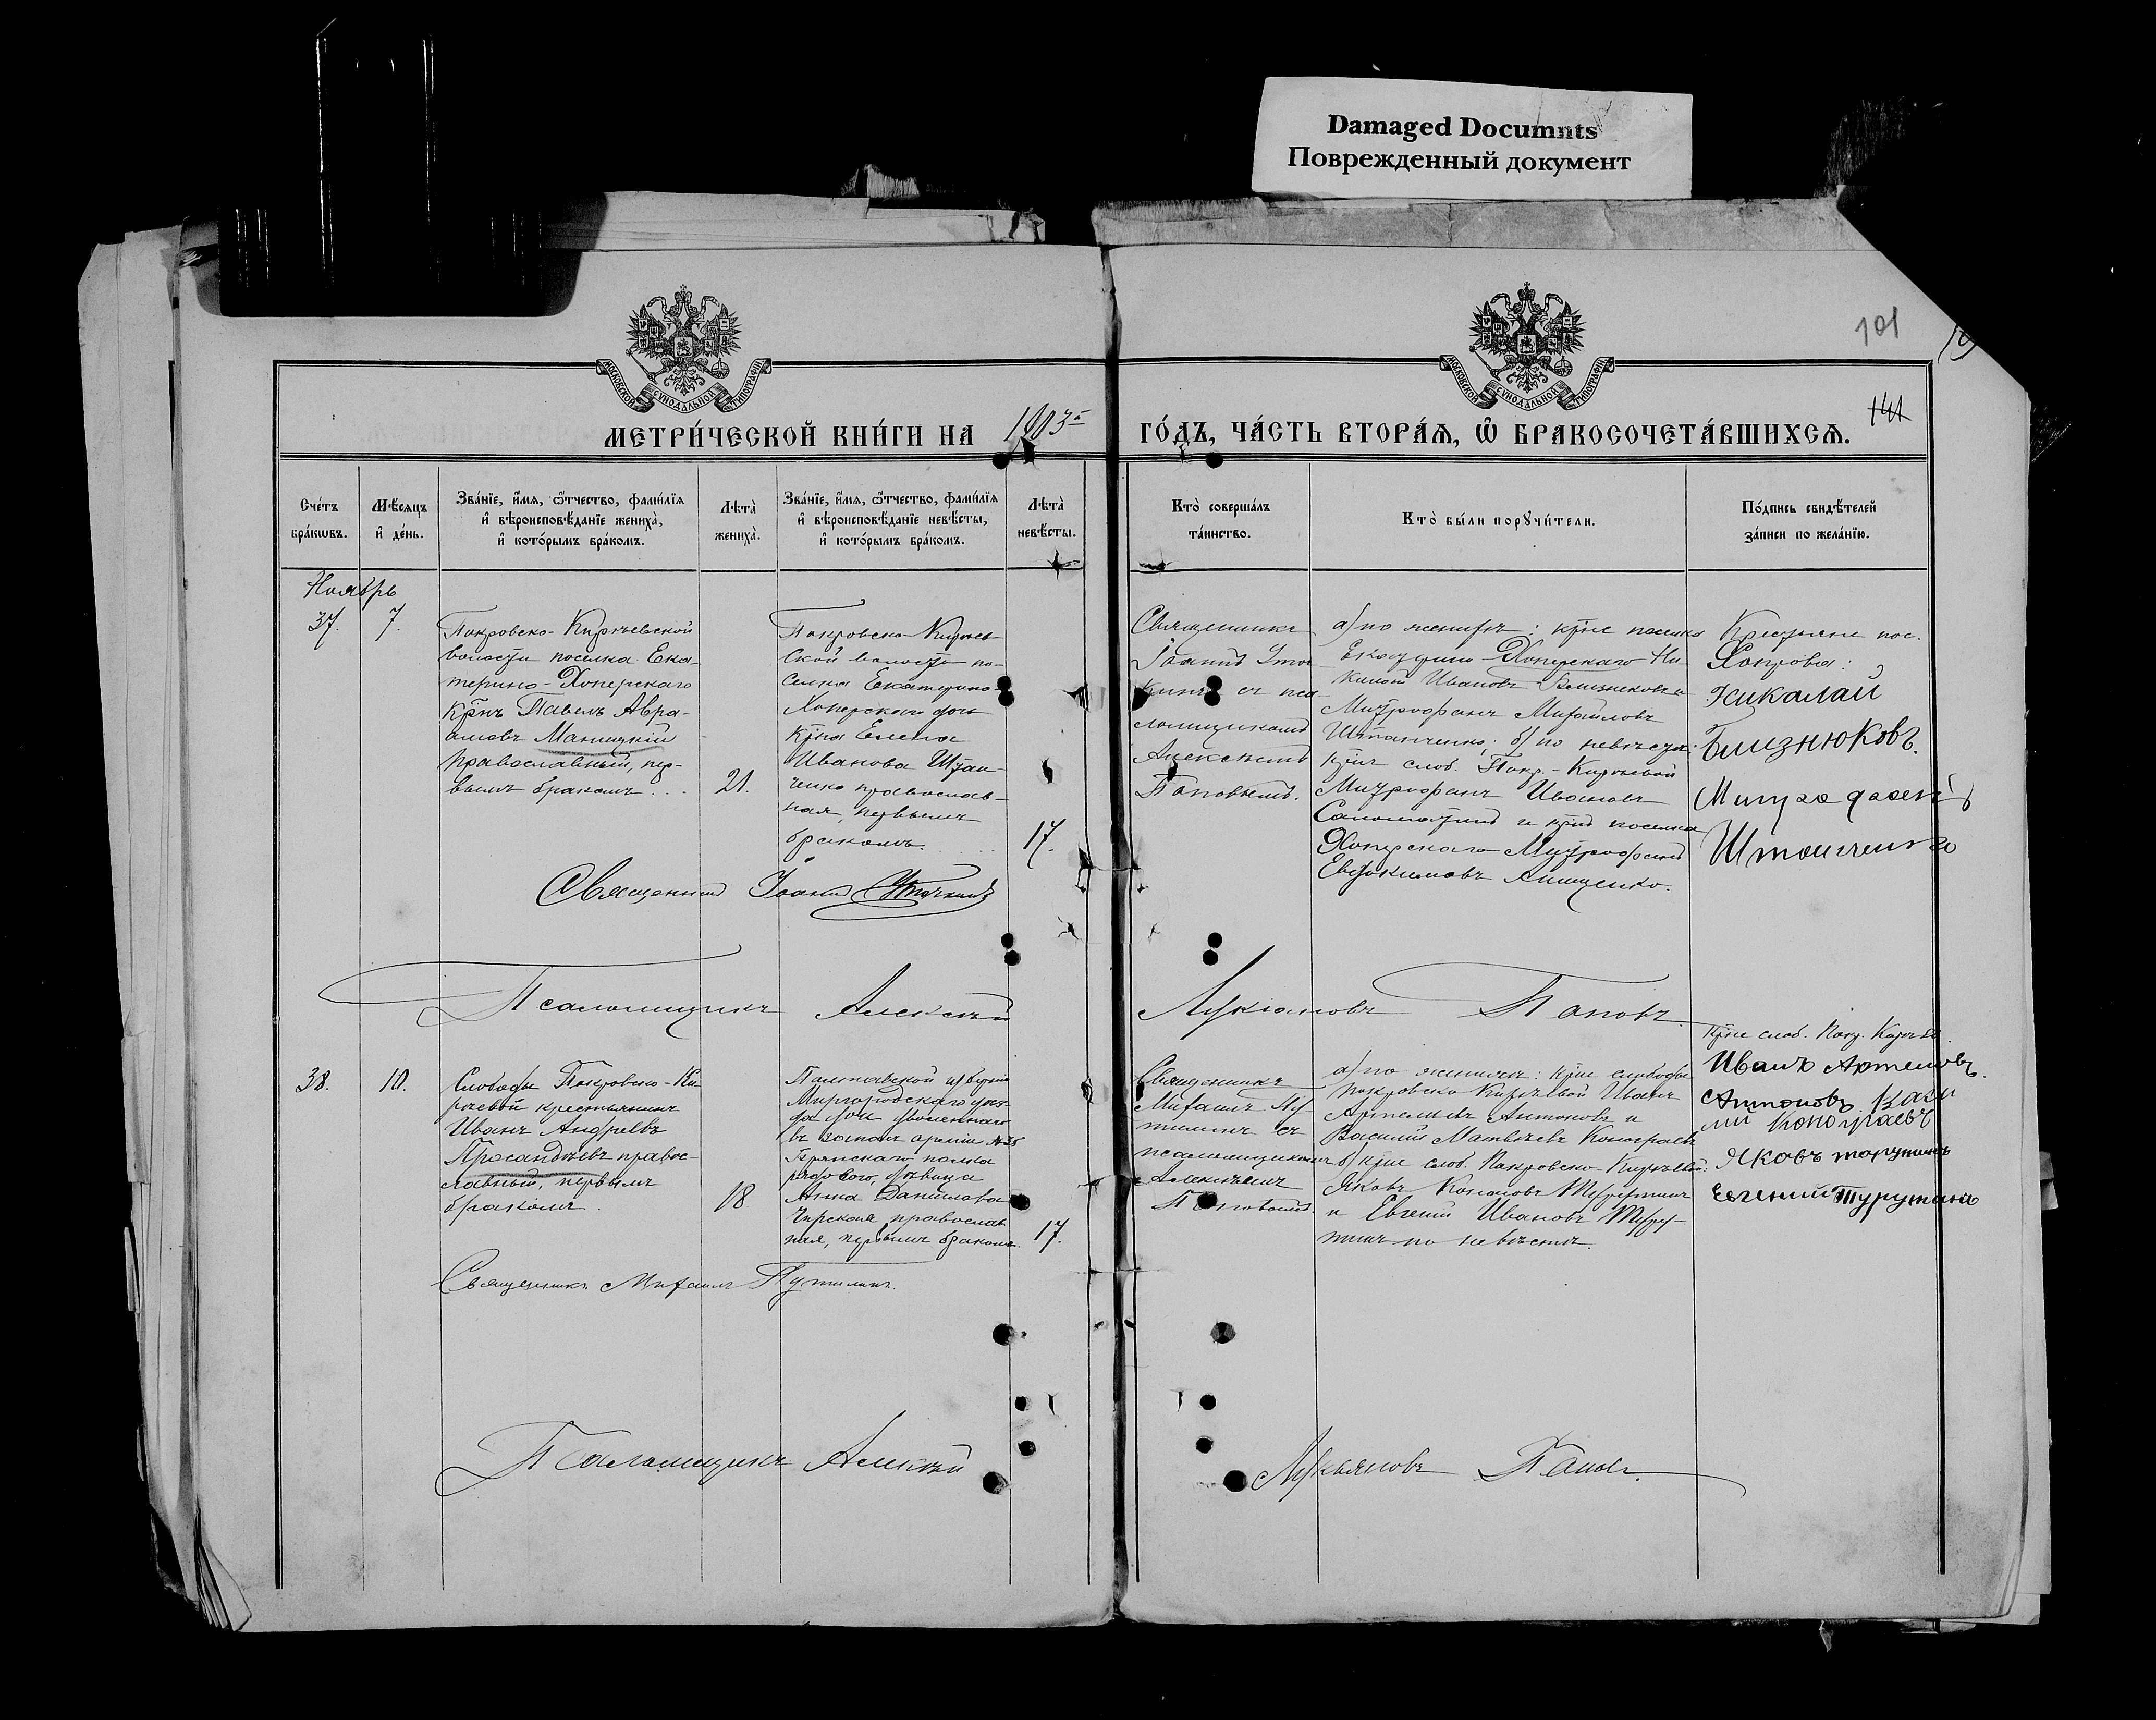 Damaged Documnts
Поврежденный документ
101
141
МОСКОВСКОЙ СѴНОДАЛЬНОЙ ТИПОГРАФІИ
МОСКОВСКОЙ СѴНОДАЛЬНОЙ ТИПОГРАФІИ
МЕТРИ́ЧЕСКОЙ КНИ́ГИ НА 1903й ГО́ДЪ, ЧА́СТЬ ВТОРА́Ѧ, Ѽ БРАКОСОЧЕТА́ВШИХСѦ.
Сче́тъ
бра́кѡвъ.
Мѣ́сяцъ
и҆ де́нь.
Зва́нїе, и҆́мѧ, ѻ҆́тчество, фами́лїѧ
и҆ вѣроисповѣ́данїе жениха̀,
и҆ кото́рымъ бра́комъ.
Лѣта̀
жениха̀.
Зва́нїе, и҆́мѧ, ѻ҆́тчество, фами́лїѧ
и҆ вѣроисповѣ́данїе невѣ́сты,
и҆ кото́рымъ бра́комъ.
Лѣта̀
невѣ́сты.
Кто̀ соверша́лъ
та́инство.
Кто̀ бы́ли порꙋчи́тели.
По́дпись свидѣ́телей
за́писи по жела́нїю.
Ноябрь
37.
7.
Покровско-Кирѣевской
волости поселка Ека-
терино-Хоперскаго
крнъ Павелъ Авра-
амовъ Маницкій
православный, пер-
вымъ бракомъ . . .
21.
Покровско-Кирѣев
ской волости по-
селка Екатерино-
Хоперскаго дочь
крна Елена
Иванова Штан-
ченко православ-
ная, первымъ
бракомъ. . . .
17.
Священникъ
Іоаннъ Уточ
кинъ съ пса
ломщикомъ
Алексѣемъ
Поповымъ.
а) по женихѣ: крне поселка
Екатерино-Хоперскаго Ни-
колай Ивановъ Близнюковъ и
Митрофанъ Михайловъ
Штанченко; б) по невѣстѣ:
крнъ слоб. Покр.-Кирѣевой
Митрофанъ Ивановъ
и крнъ поселка
Хоперскаго Митрофанъ
Евдокимовъ Анищенко.
Крестьяне пос.
Николай
Близнюковъ.
Штанченко
Священникъ Іоаннъ Уточкинъ
Псаломщикъ Алексѣй Лукіановъ Поповъ
38.
10.
Слободы Покровско-Ки
рѣевой крестьянинъ
Иванъ Андреевъ
Просандѣевъ правос-
лавный, первымъ
бракомъ.
18
Полтавской губерніи
Миргородскаго уѣз-
да дочь уволеннаго
въ запасъ арміи № 35
Брянскаго полка
рядового, дѣвица
Анна Данилова
Чирская православ
ная, первымъ бракомъ.
17.
Священникъ
Михаилъ Пу-
тилинъ съ
псаломщикомъ
Алексѣемъ
Поповымъ
а) по женихѣ: крне слободы
Покровско-Кирѣевой Иванъ
Артемьевъ Антоновъ и
Василій Матвѣевъ Конограевъ
б) крне слоб. Покровско-Кирѣевой:
Яковъ Кононовъ Турутинъ
и Евгеній Ивановъ Туру-
тинъ по невѣстѣ.
Крне слоб. Покр. Кирѣев.
Иванъ Артемовъ
Антоновъ Васи
лий Конограевъ
Яковъ турутинъ
Евгений Турутинъ
Священникъ Михаилъ Путилинъ.
Псаломщикъ Алексѣй Лукьяновъ Поповъ.